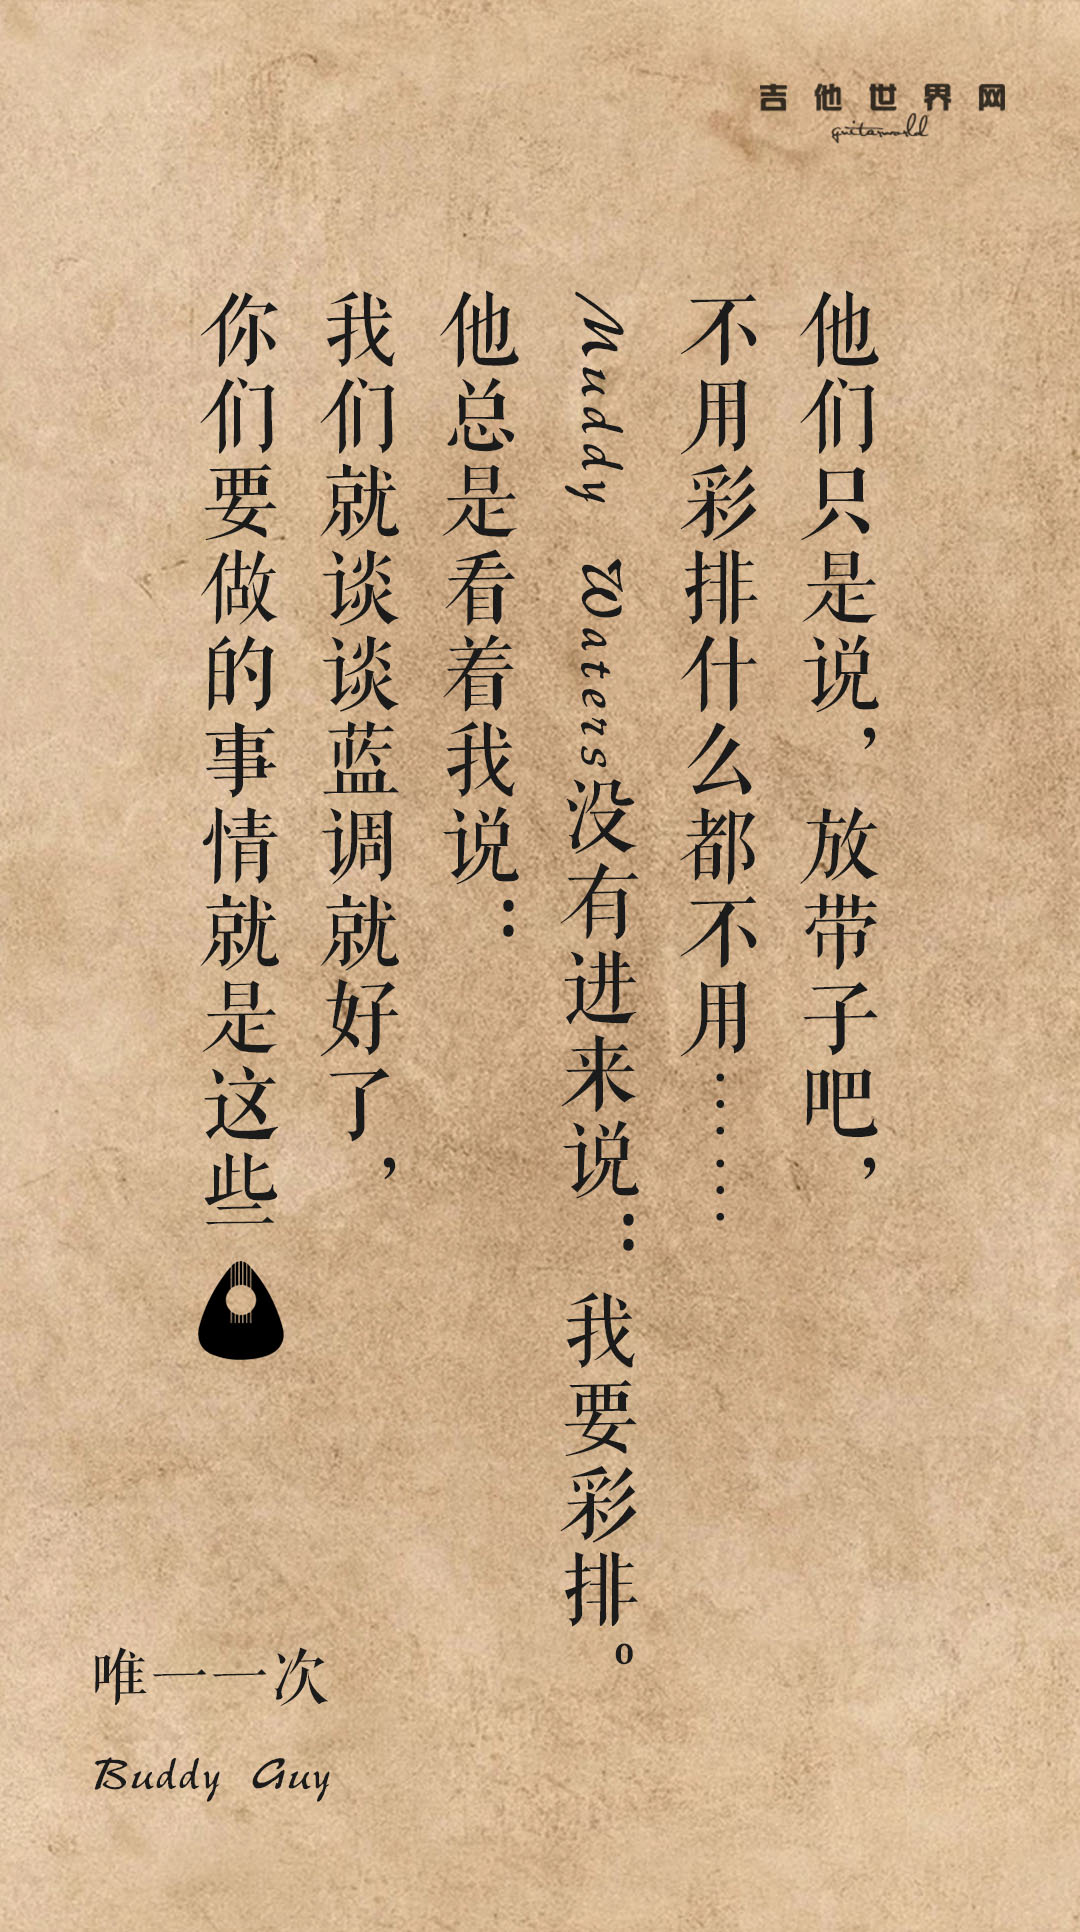 吉他世界网
guitarworld
他们只是说，放带子吧，
不用彩排什么都不用……
Muddy Waters没有进来说：我要彩排。
他总是看着我说：
我们就谈谈蓝调就好了，
你们要做的事情就是这些
唯一一次
Buddy Guy